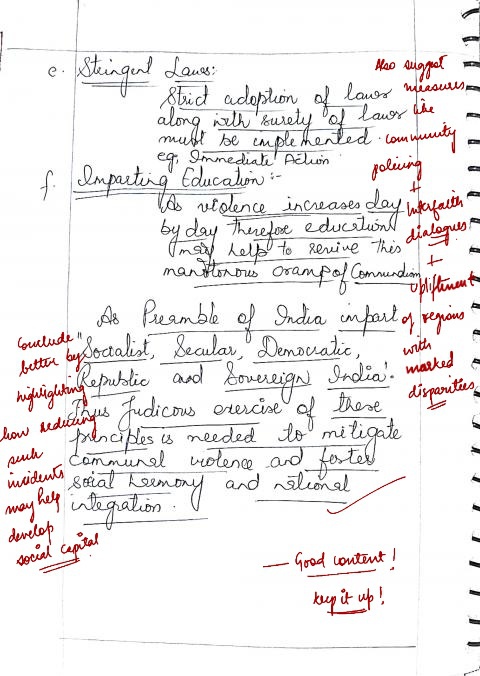 e. Stringent Laws:
Strict adoption of laws
along with surety of laws
must be implemented.
eg. Immediate Action
f. Imparting Education:-
As violence increases day
by day therefore education
may help to revive this
monotonous cramp of Communalism
As Preamble of India impart
"Socialist, Secular, Democratic,
Republic and Sovereign India".
Thus Judicous exercise of these
principles is needed to mitigate
communal violence and foster
social hermony and national
integration.
Also suggest
measures
like
community
policing
+
Interfaith
dialogues
+
upliftment
of regions
with
marked
disparities
Conclude
better by
highlighting
how reducing
such
incidents
may help
develop
social capital
— Good content!
keep it up!